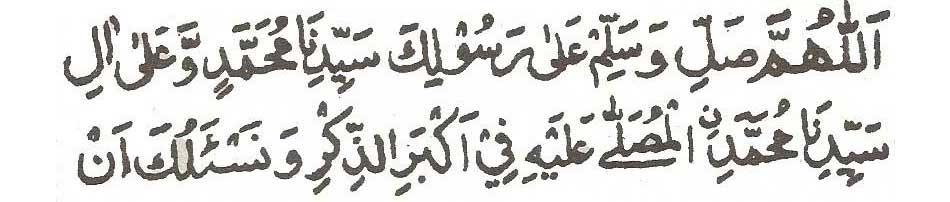 اَللّٰهُمَّ صَلِّ وَسَلِّمْ عَلٰى رَسُوْلِكَ سَيِّدِنَا مُحَمَّدٍ وَّعَلٰى اٰلِ
سَيِّدِنَا مُحَمَّدِنِ الْمُصَلّٰى عَلَيْهِ فِيْ اَكْبَرِ الذِّكْرِ وَنَسْئَلُكَ اَنْ